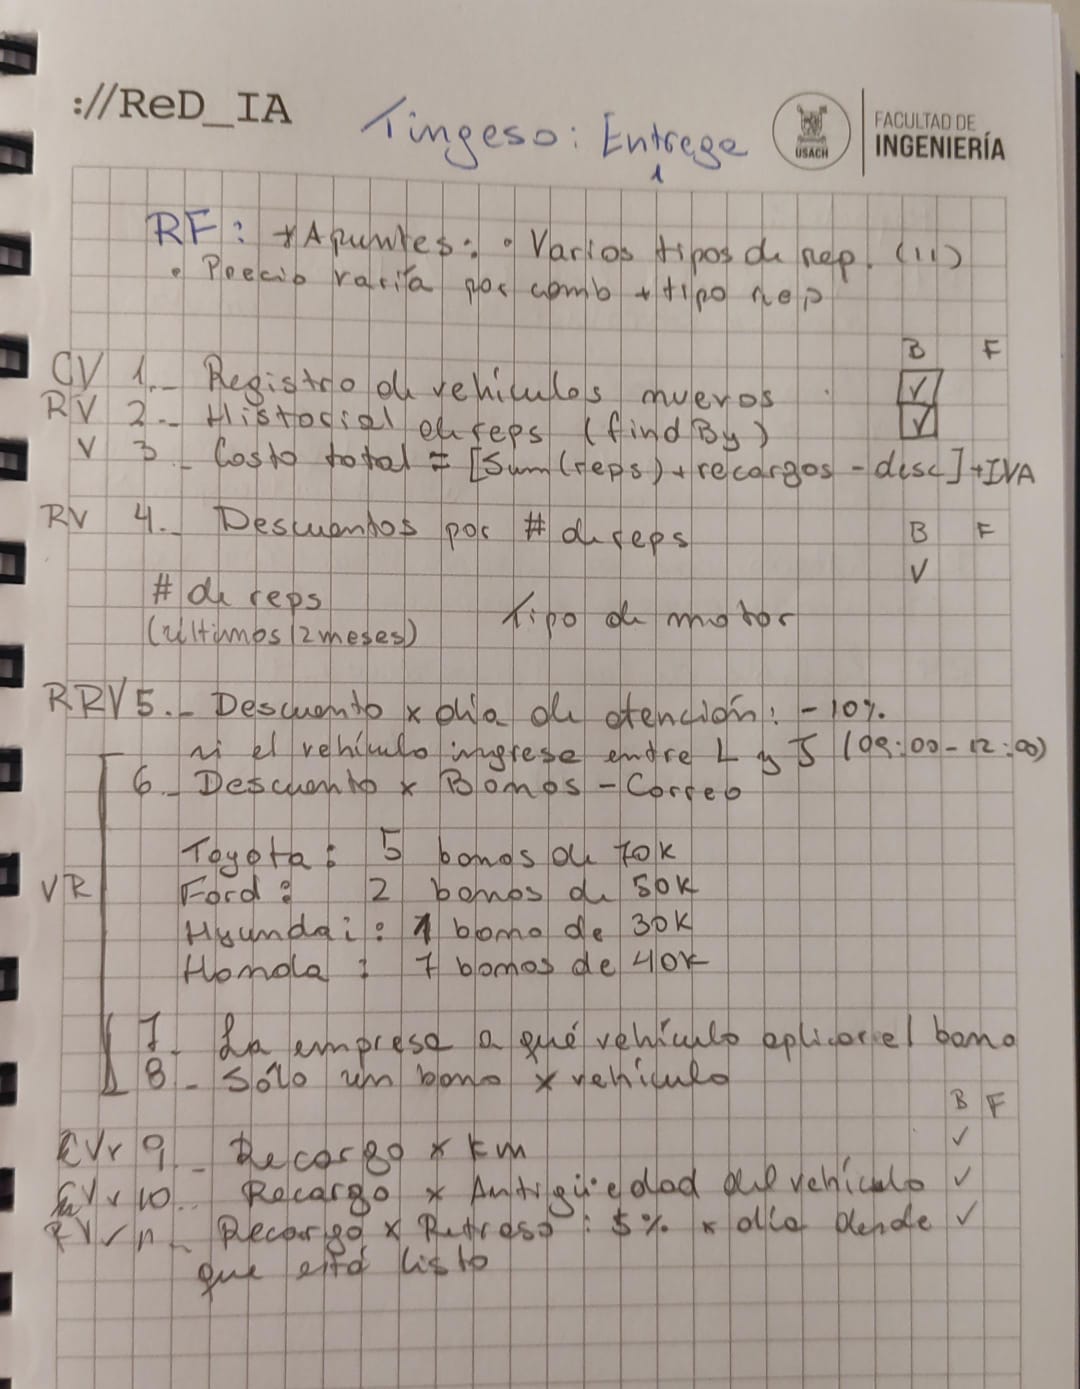 ://ReD_IA
Tingeso: Entrega 1
USACH
FACULTAD DE
INGENIERÍA
RF: * Apuntes: • Varios tipos de rep. (11)
• Precio varía por comb + tipo rep
B F
CV 1.- Registro de vehículos nuevos ✓
RV 2.- Historial de reps (findBy) ✓
V 3.- Costo total = [Sum(reps) + recargos - desc] + IVA
RV 4.- Descuentos por # de reps B F
✓
# de reps Tipo de motor
(últimos 12 meses)
RRV 5.- Descuento x día de atención: -10%
si el vehículo ingresa entre L y J (09:00-12:00)
6.- Descuento x Bonos - Correo
Toyota: 5 bonos de 70K
VR Ford: 2 bonos de 50K
Hyundai: 1 bono de 30K
Honda: 7 bonos de 40K
7.- La empresa a qué vehículo aplicar el bono
8.- Sólo un bono x vehículo
B F
9.- Recargo x km ✓
10.- Recargo x Antigüedad del vehículo ✓
11.- Recargo x Retraso: 5% x día desde ✓
que está listo